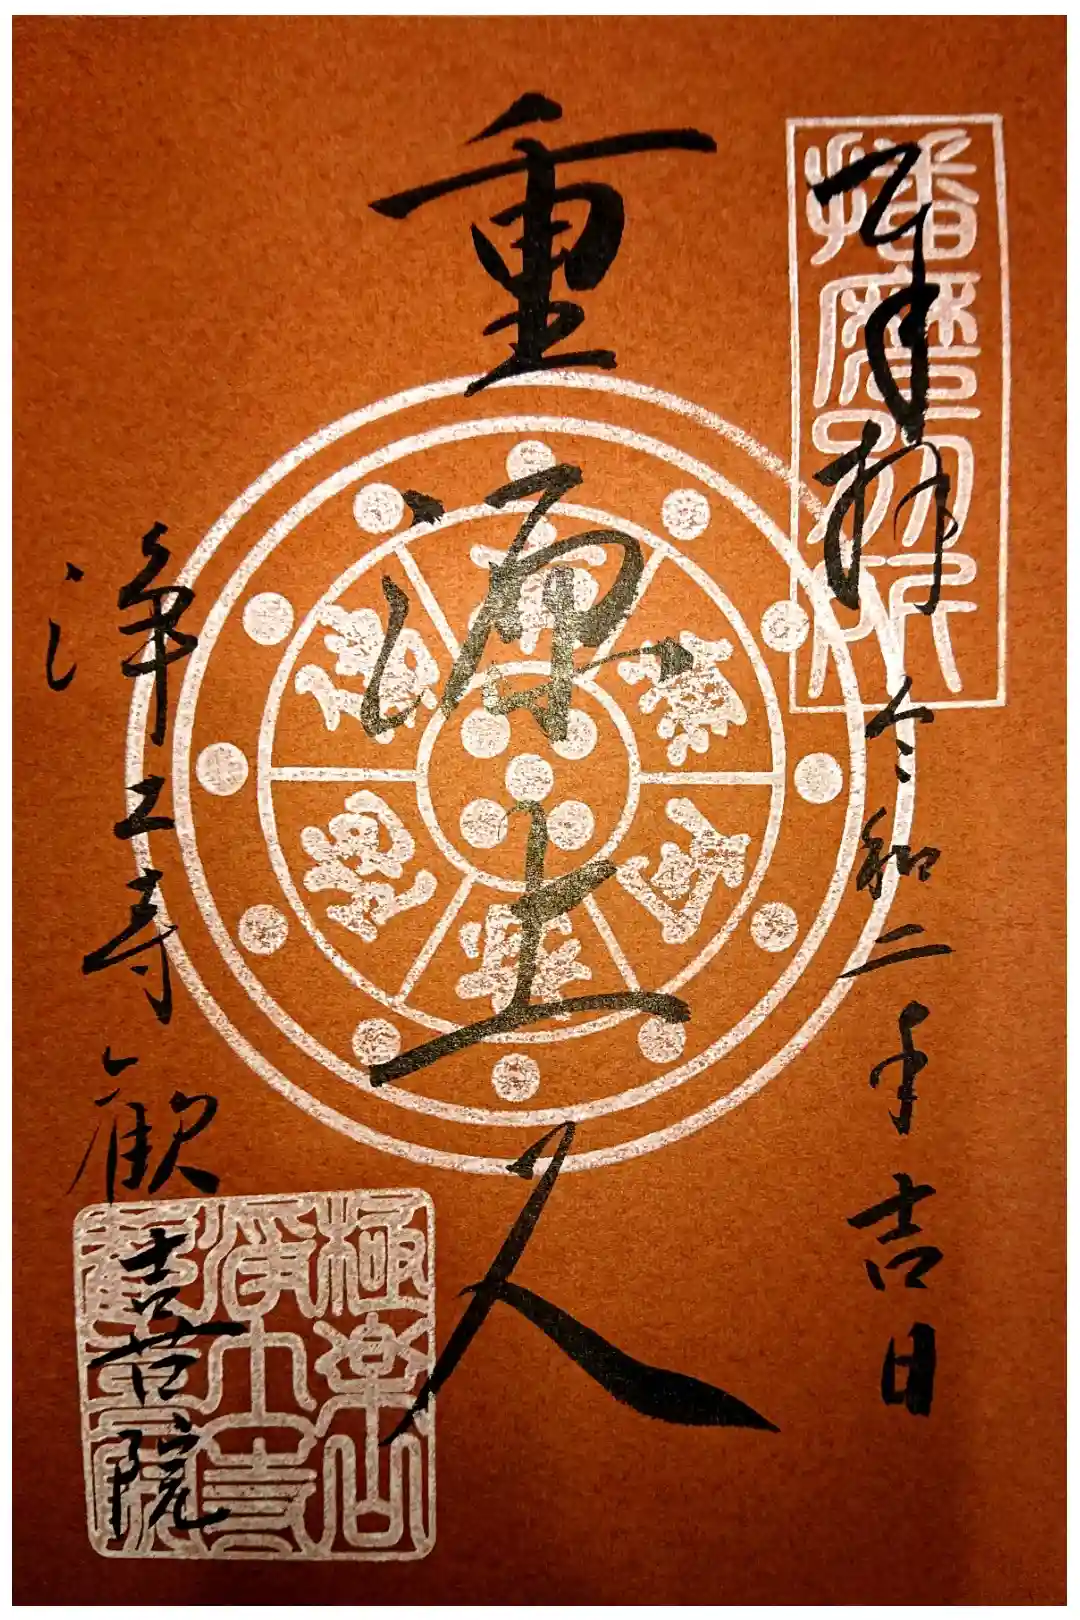 播磨別所
奉拝 令和二年吉日
重源上人
浄土寺 歓喜院
極楽山
浄土寺
歓喜院